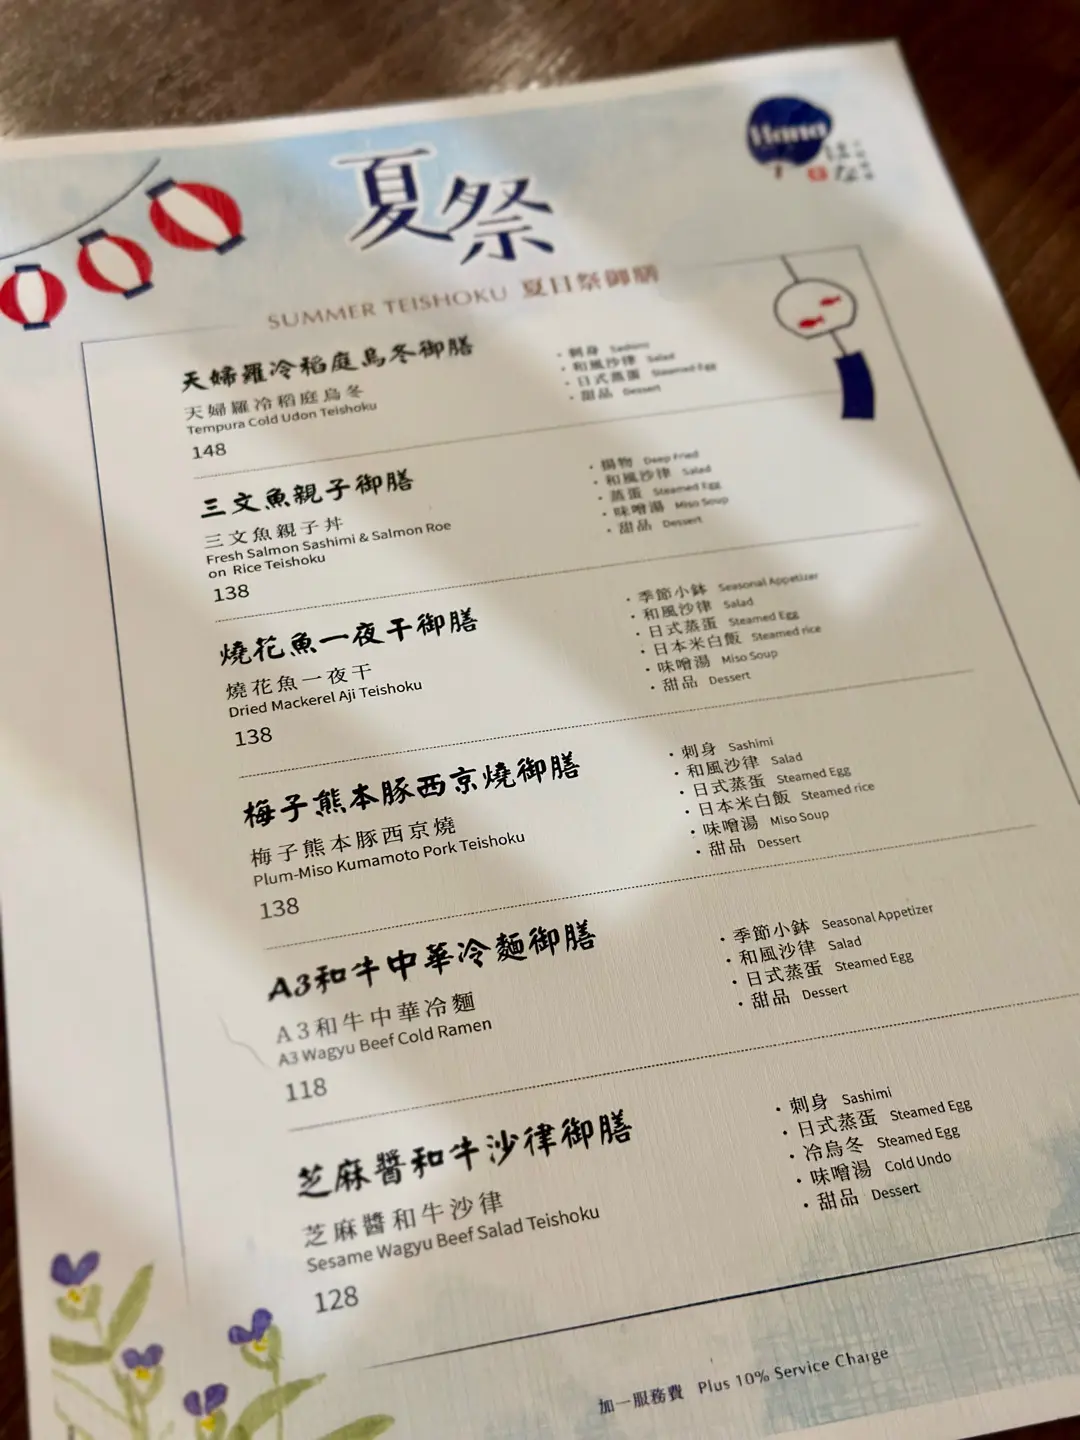 Hana
はな
夏祭
SUMMER TEISHOKU 夏日祭御膳
天婦羅冷稻庭烏冬御膳
天婦羅冷稻庭烏冬
Tempura Cold Udon Teishoku
148
・刺身 Sashimi
・和風沙律 Salad
・日式蒸蛋 Steamed Egg
・甜品 Dessert
三文魚親子御膳
三文魚親子丼
Fresh Salmon Sashimi & Salmon Roe
on Rice Teishoku
138
・揚物 Deep Fried
・和風沙律 Salad
・蒸蛋 Steamed Egg
・味噌湯 Miso Soup
・甜品 Dessert
燒花魚一夜干御膳
燒花魚一夜干
Dried Mackerel Aji Teishoku
138
・季節小鉢 Seasonal Appetizer
・和風沙律 Salad
・日式蒸蛋 Steamed Egg
・日本米白飯 Steamed rice
・味噌湯 Miso Soup
・甜品 Dessert
梅子熊本豚西京燒御膳
梅子熊本豚西京燒
Plum-Miso Kumamoto Pork Teishoku
138
・刺身 Sashimi
・和風沙律 Salad
・日式蒸蛋 Steamed Egg
・日本米白飯 Steamed rice
・味噌湯 Miso Soup
・甜品 Dessert
A3和牛中華冷麵御膳
A3和牛中華冷麵
A3 Wagyu Beef Cold Ramen
118
・季節小鉢 Seasonal Appetizer
・和風沙律 Salad
・日式蒸蛋 Steamed Egg
・甜品 Dessert
芝麻醬和牛沙律御膳
芝麻醬和牛沙律
Sesame Wagyu Beef Salad Teishoku
128
・刺身 Sashimi
・日式蒸蛋 Steamed Egg
・冷烏冬 Steamed Egg
・味噌湯 Cold Undo
・甜品 Dessert
加一服務費 Plus 10% Service Charge